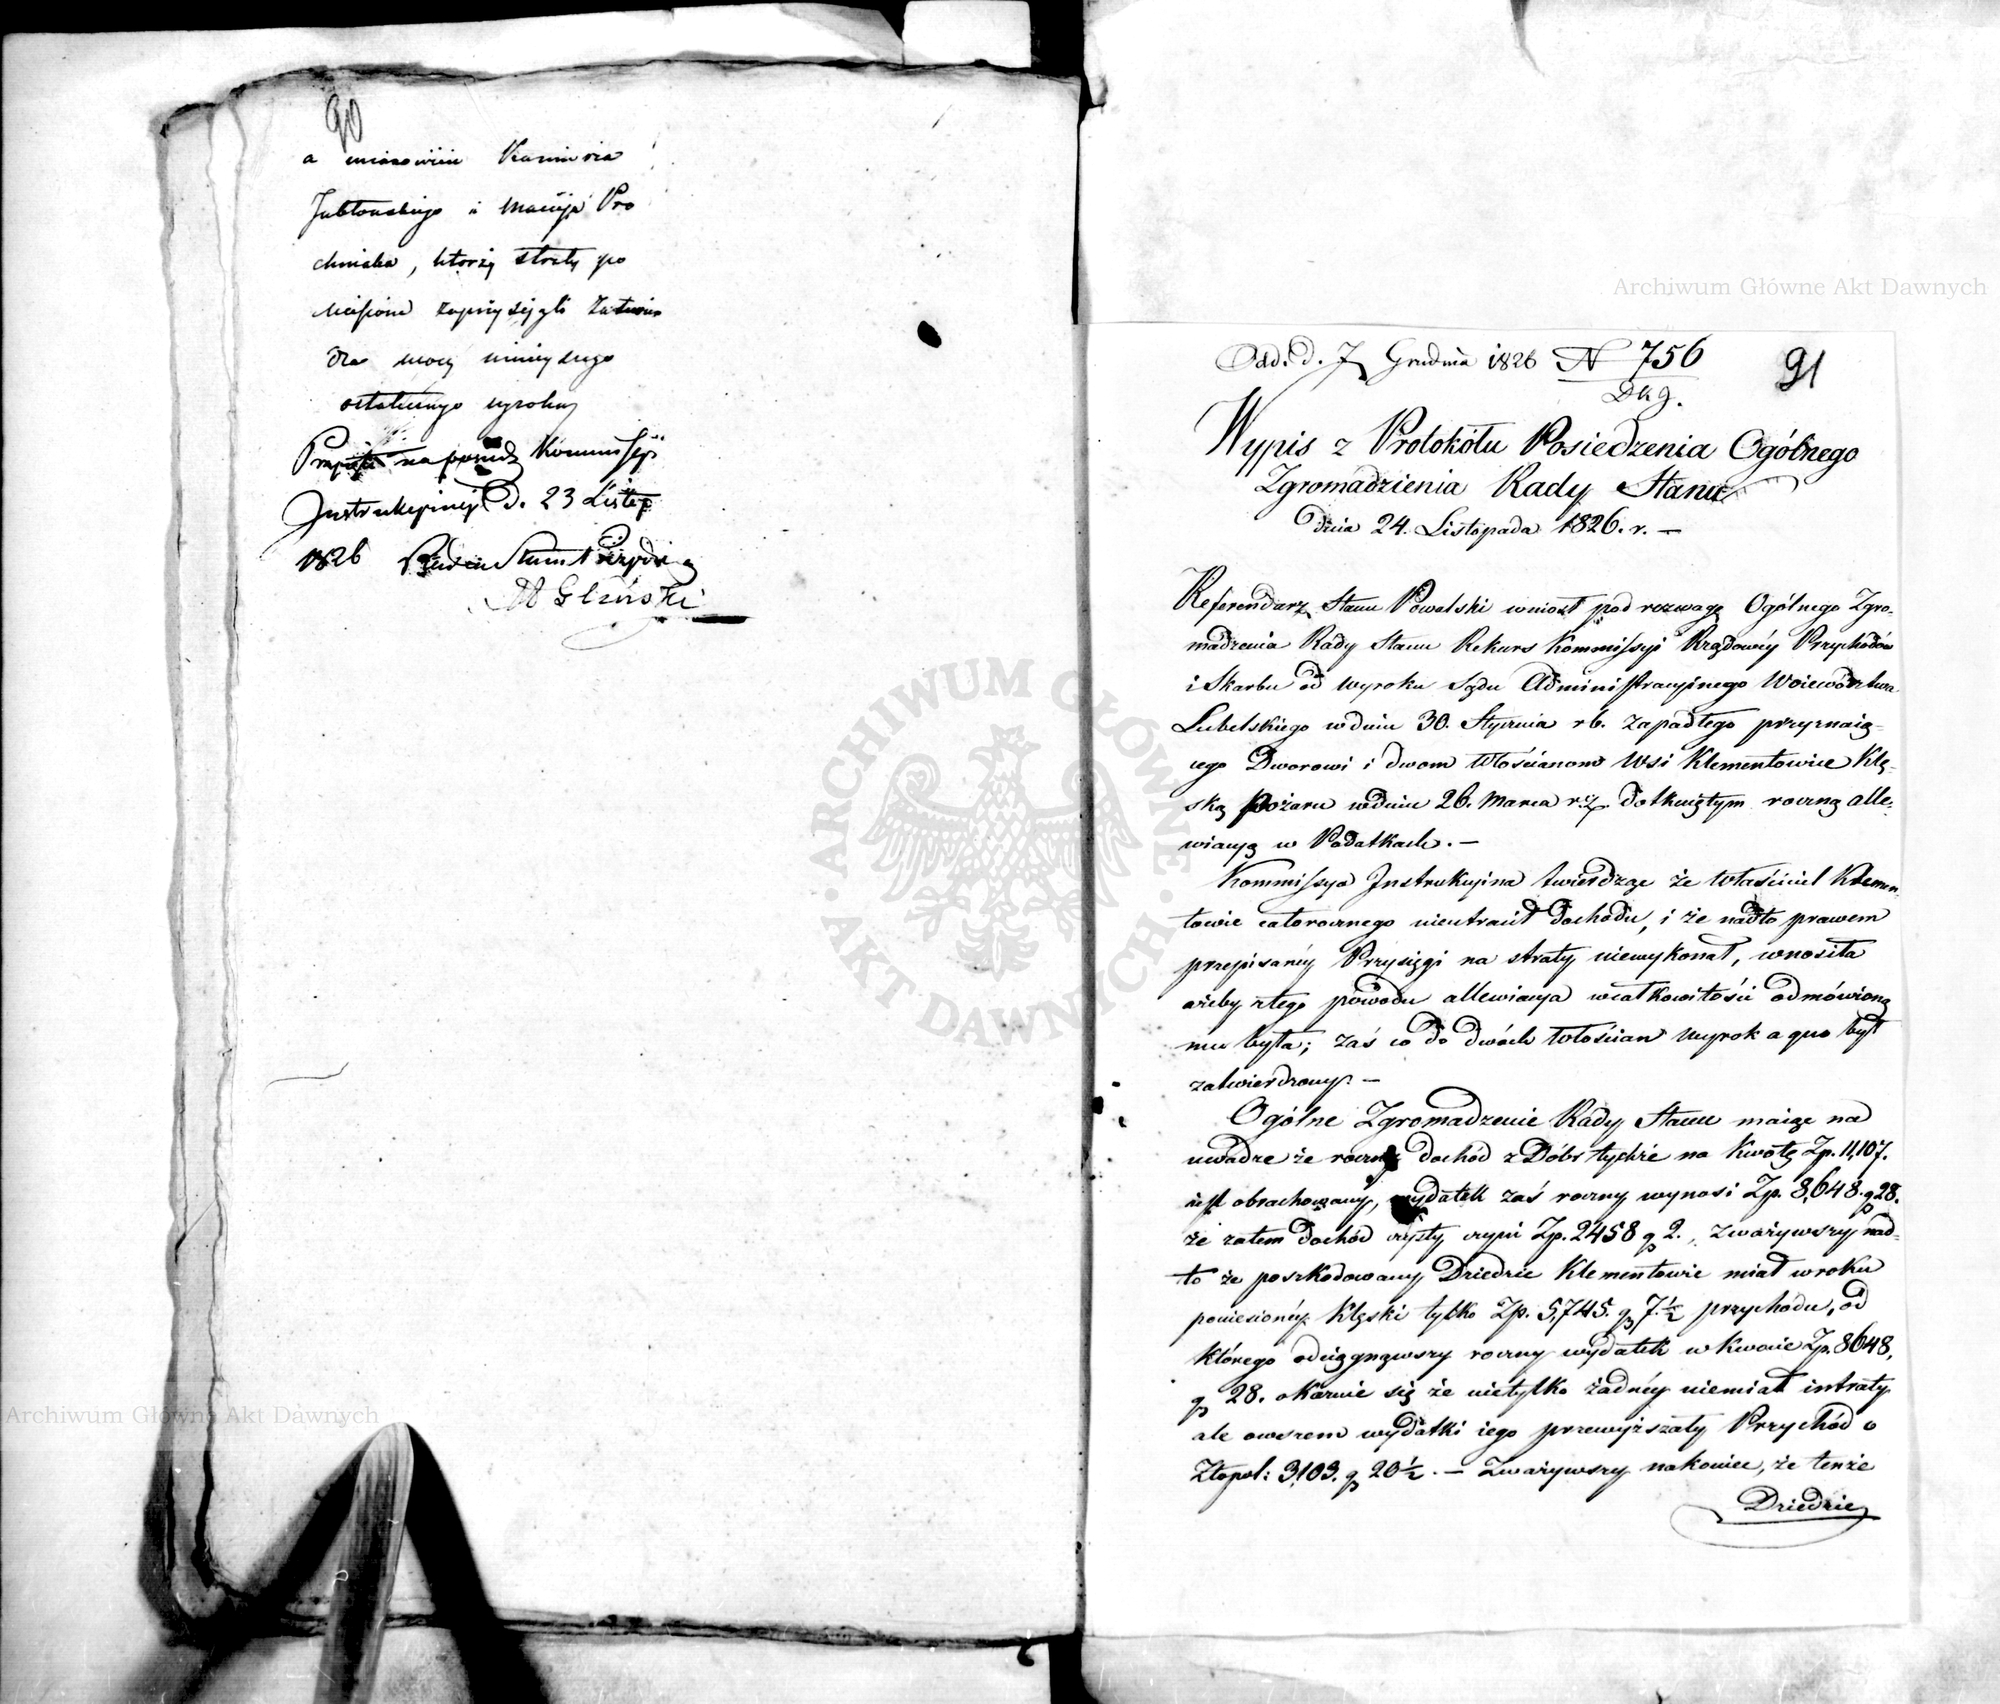 90
a mianowicie Kazimirza
Jabłońskiego i Macieja Pro
chniaka, którzy straty po
niesione zaprzysięgli zatwier
dza mocą niniejszego
ostatecznego wyroku
na posiedz Kommissyi
Instrukcyinej d. 23 Listop
1826 Radca Stanu Prezyduiący
M Gliński
Odd. d. 7 Grudnia 1826 N 756
D k g.
91
Wypis z Protokółu Posiedzenia Ogólnego
Zgromadzenia Rady Stanu
dnia 24. Listopada 1826. r. —
Referendarz Stanu Powalski wniosł pod rozwagę Ogólnego Zgro-
madzenia Rady Stanu Rekurs Kommissyi Rządowéy Przychodów
i Skarbu od wyroku Sądu Administracyinego Woiewództwa
Lubelskiego w dniu 30. Stycznia r b. zapadłego przyznaią-
cego Dworowi i dwom Włościanom Wsi Klementowice Klę-
ską pożaru w dniu 26. Marca r. z. dotkniętym roczną alle-
wiacyą w Podatkach. —
Kommissya Instrukcyina twierdząc że Właściciel Klemen
towic całorocznego nieutracił dochodu, i że nadto prawem
przepisanéy Przysięgi na straty niewykonał, wnosiła
ażeby z tego powodu allewiacya w całkowitości odmówioną
mu była; zaś co do dwóch Włościan Wyrok a quo był
zatwierdzony. —
Ogólne Zgromadzenie Rady Stanu maiąc na
uwadze że roczny dochód z Dóbr tychże na Kwotę Zp. 11,107.
iest obrachowany, wydatek zaś roczny wynosi Zp. 8,648. g 28.
że zatem dochód czysty czyni Zp. 2458 g 2., zważywszy nad-
to że poszkodowany Dziedzic Klementowic miał w roku
poniesionéy Klęski tylko Zp. 5,745. g 7.½ przychodu, od
którego odciągnąwszy roczny wydatek w Kwocie Zp. 8648,
g 28. okazuie się że nietylko żadnéy niemiał intraty
ale owszem wydatki iego przewyższały Przychód o
Złopol: 3,103. g 20½. — Zważywszy nakoniec, że tenże
Dziedzic
Archiwum Główne Akt Dawnych
Archiwum Główne Akt Dawnych
ARCHIWUM GŁÓWNE · AKT DAWNYCH ·